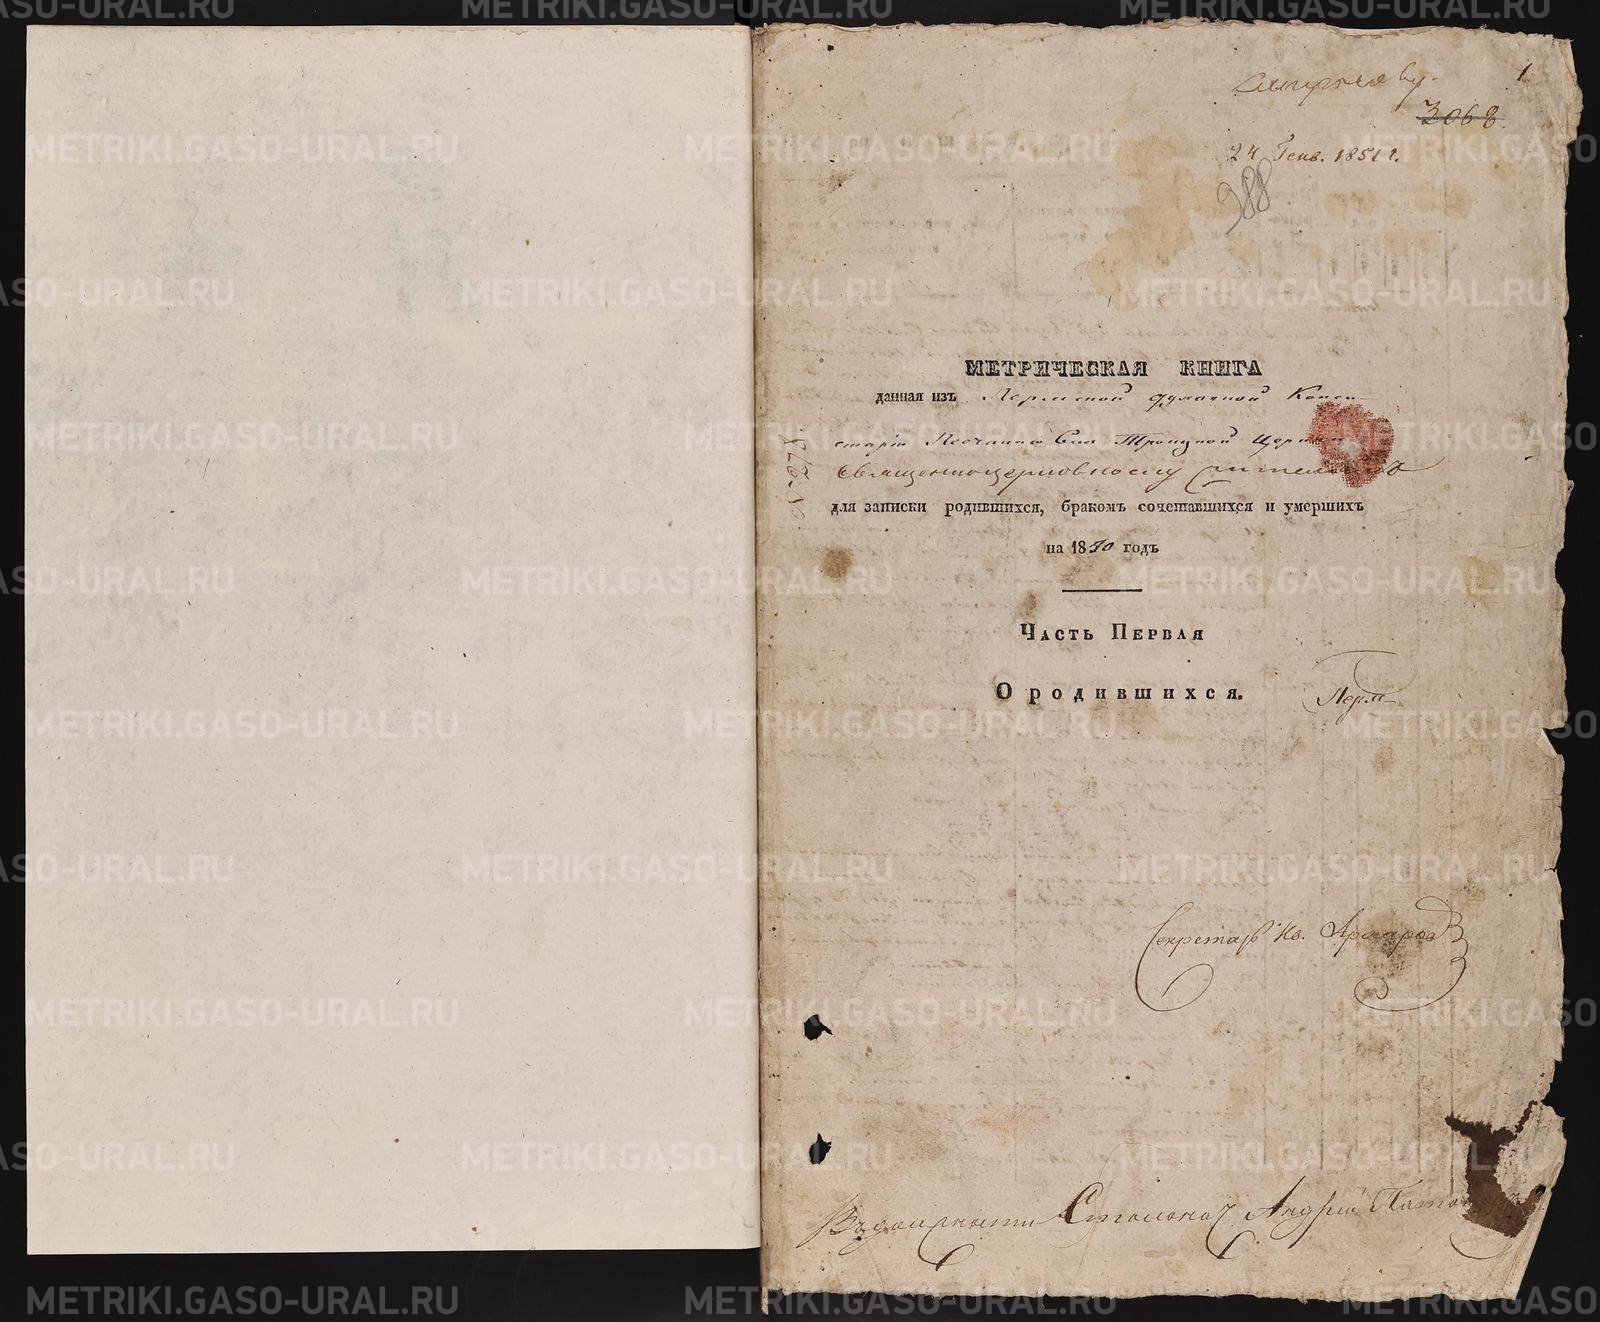 1
3068
24 Генв. 1851 г.
388
МЕТРИЧЕСКАЯ КНИГА
данная изъ Пермской духовной Конси
сторіи Песчанаго Села Троицкой Церкви
Священноцерковнослужителямъ
для записки родившихся, бракомъ сочетавшихся и умершихъ
на 1850 годъ
Часть Первая
О родившихся.
Перм
Секретарь Кв.
Въ должности Столонач Андрей
METRIKI.GASO-URAL.RU